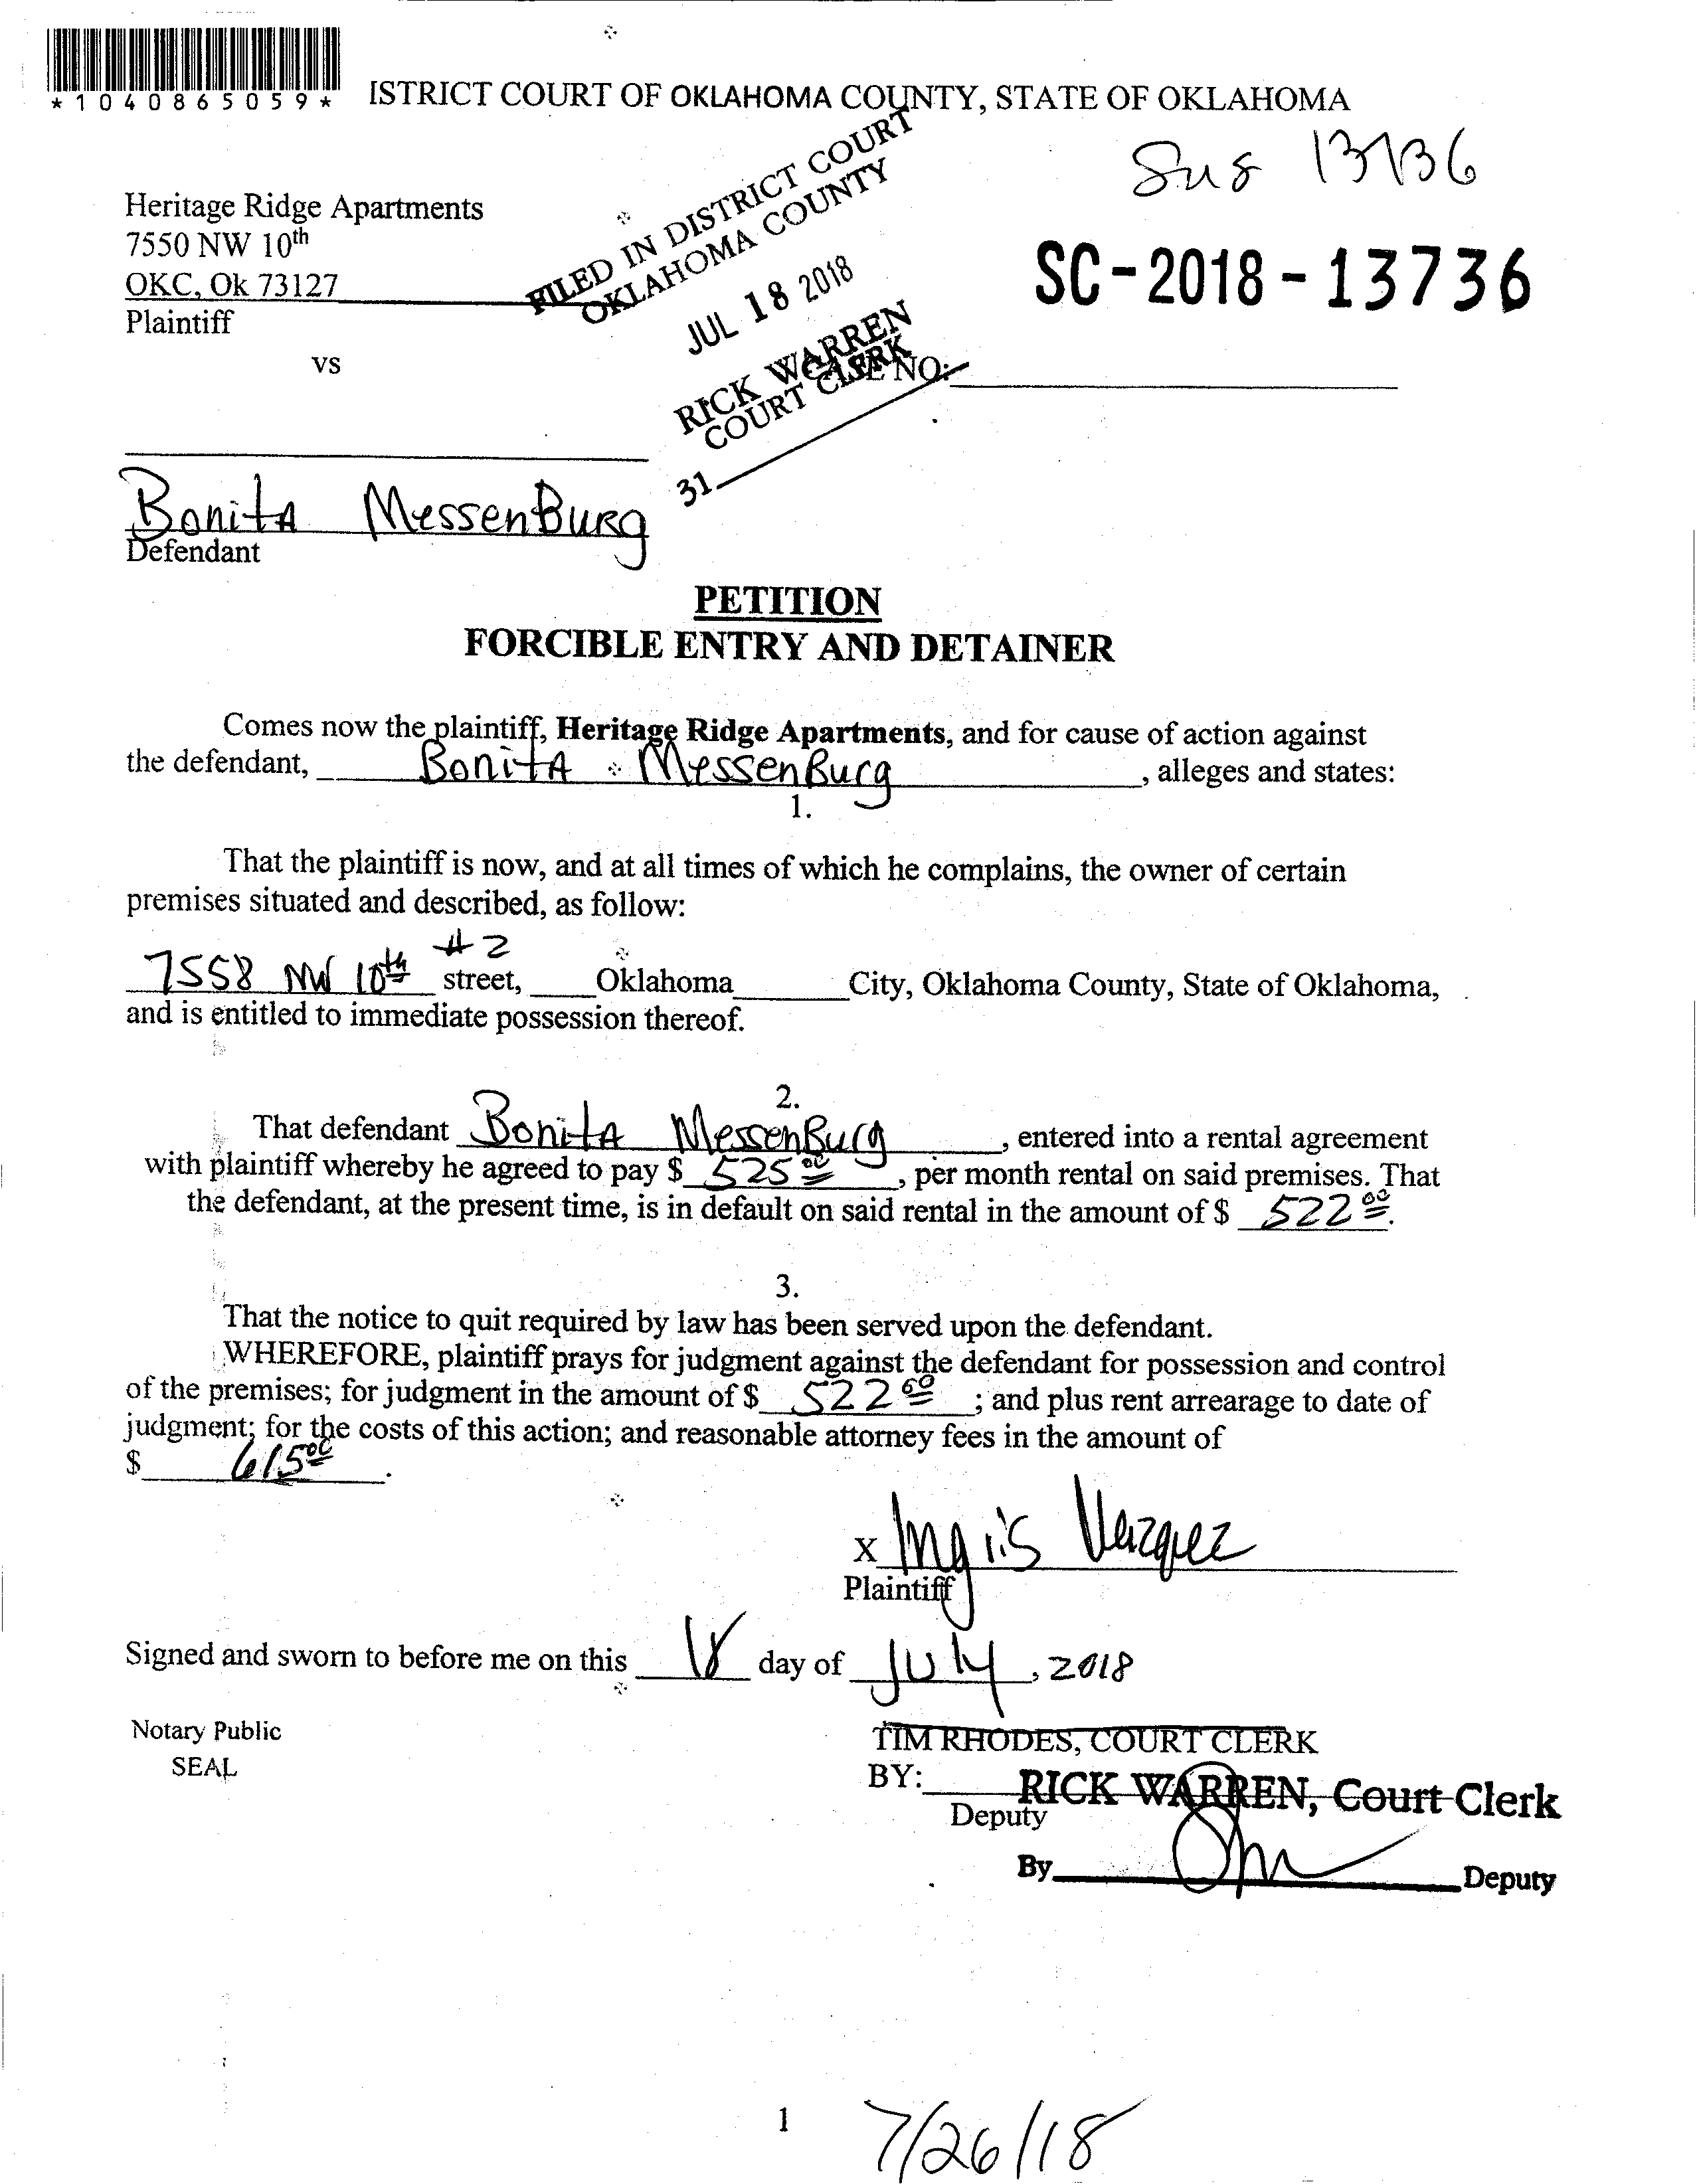 *1040865059*
ISTRICT COURT OF OKLAHOMA COUNTY, STATE OF OKLAHOMA
13736
Heritage Ridge Apartments
7550 NW 10th
OKC, Ok 73127
Plaintiff
vs
FILED IN DISTRICT COURT
OKLAHOMA COUNTY
JUL 18 2018
RICK WARREN
COURT CLERK
31
SC-2018-13736
CASE NO:
Bonita MessenBurg
Defendant
PETITION
FORCIBLE ENTRY AND DETAINER
Comes now the plaintiff, Heritage Ridge Apartments, and for cause of action against
the defendant, Bonita MessenBurg, alleges and states:
1.
That the plaintiff is now, and at all times of which he complains, the owner of certain
premises situated and described, as follow:
#2
7558 NW 10th street, Oklahoma City, Oklahoma County, State of Oklahoma,
and is entitled to immediate possession thereof.
2.
That defendant Bonita MessenBurg, entered into a rental agreement
with plaintiff whereby he agreed to pay $ 525 00, per month rental on said premises. That
the defendant, at the present time, is in default on said rental in the amount of $ 522 00.
3.
That the notice to quit required by law has been served upon the defendant.
WHEREFORE, plaintiff prays for judgment against the defendant for possession and control
of the premises; for judgment in the amount of $ 522 00; and plus rent arrearage to date of
judgment; for the costs of this action; and reasonable attorney fees in the amount of
$ 615 00.
X Ingris Vazquez
Plaintiff
Signed and sworn to before me on this 18 day of July, 2018
Notary Public
SEAL
TIM RHODES, COURT CLERK
BY:
Deputy
RICK WARREN, Court Clerk
By Deputy
1
7/26/18